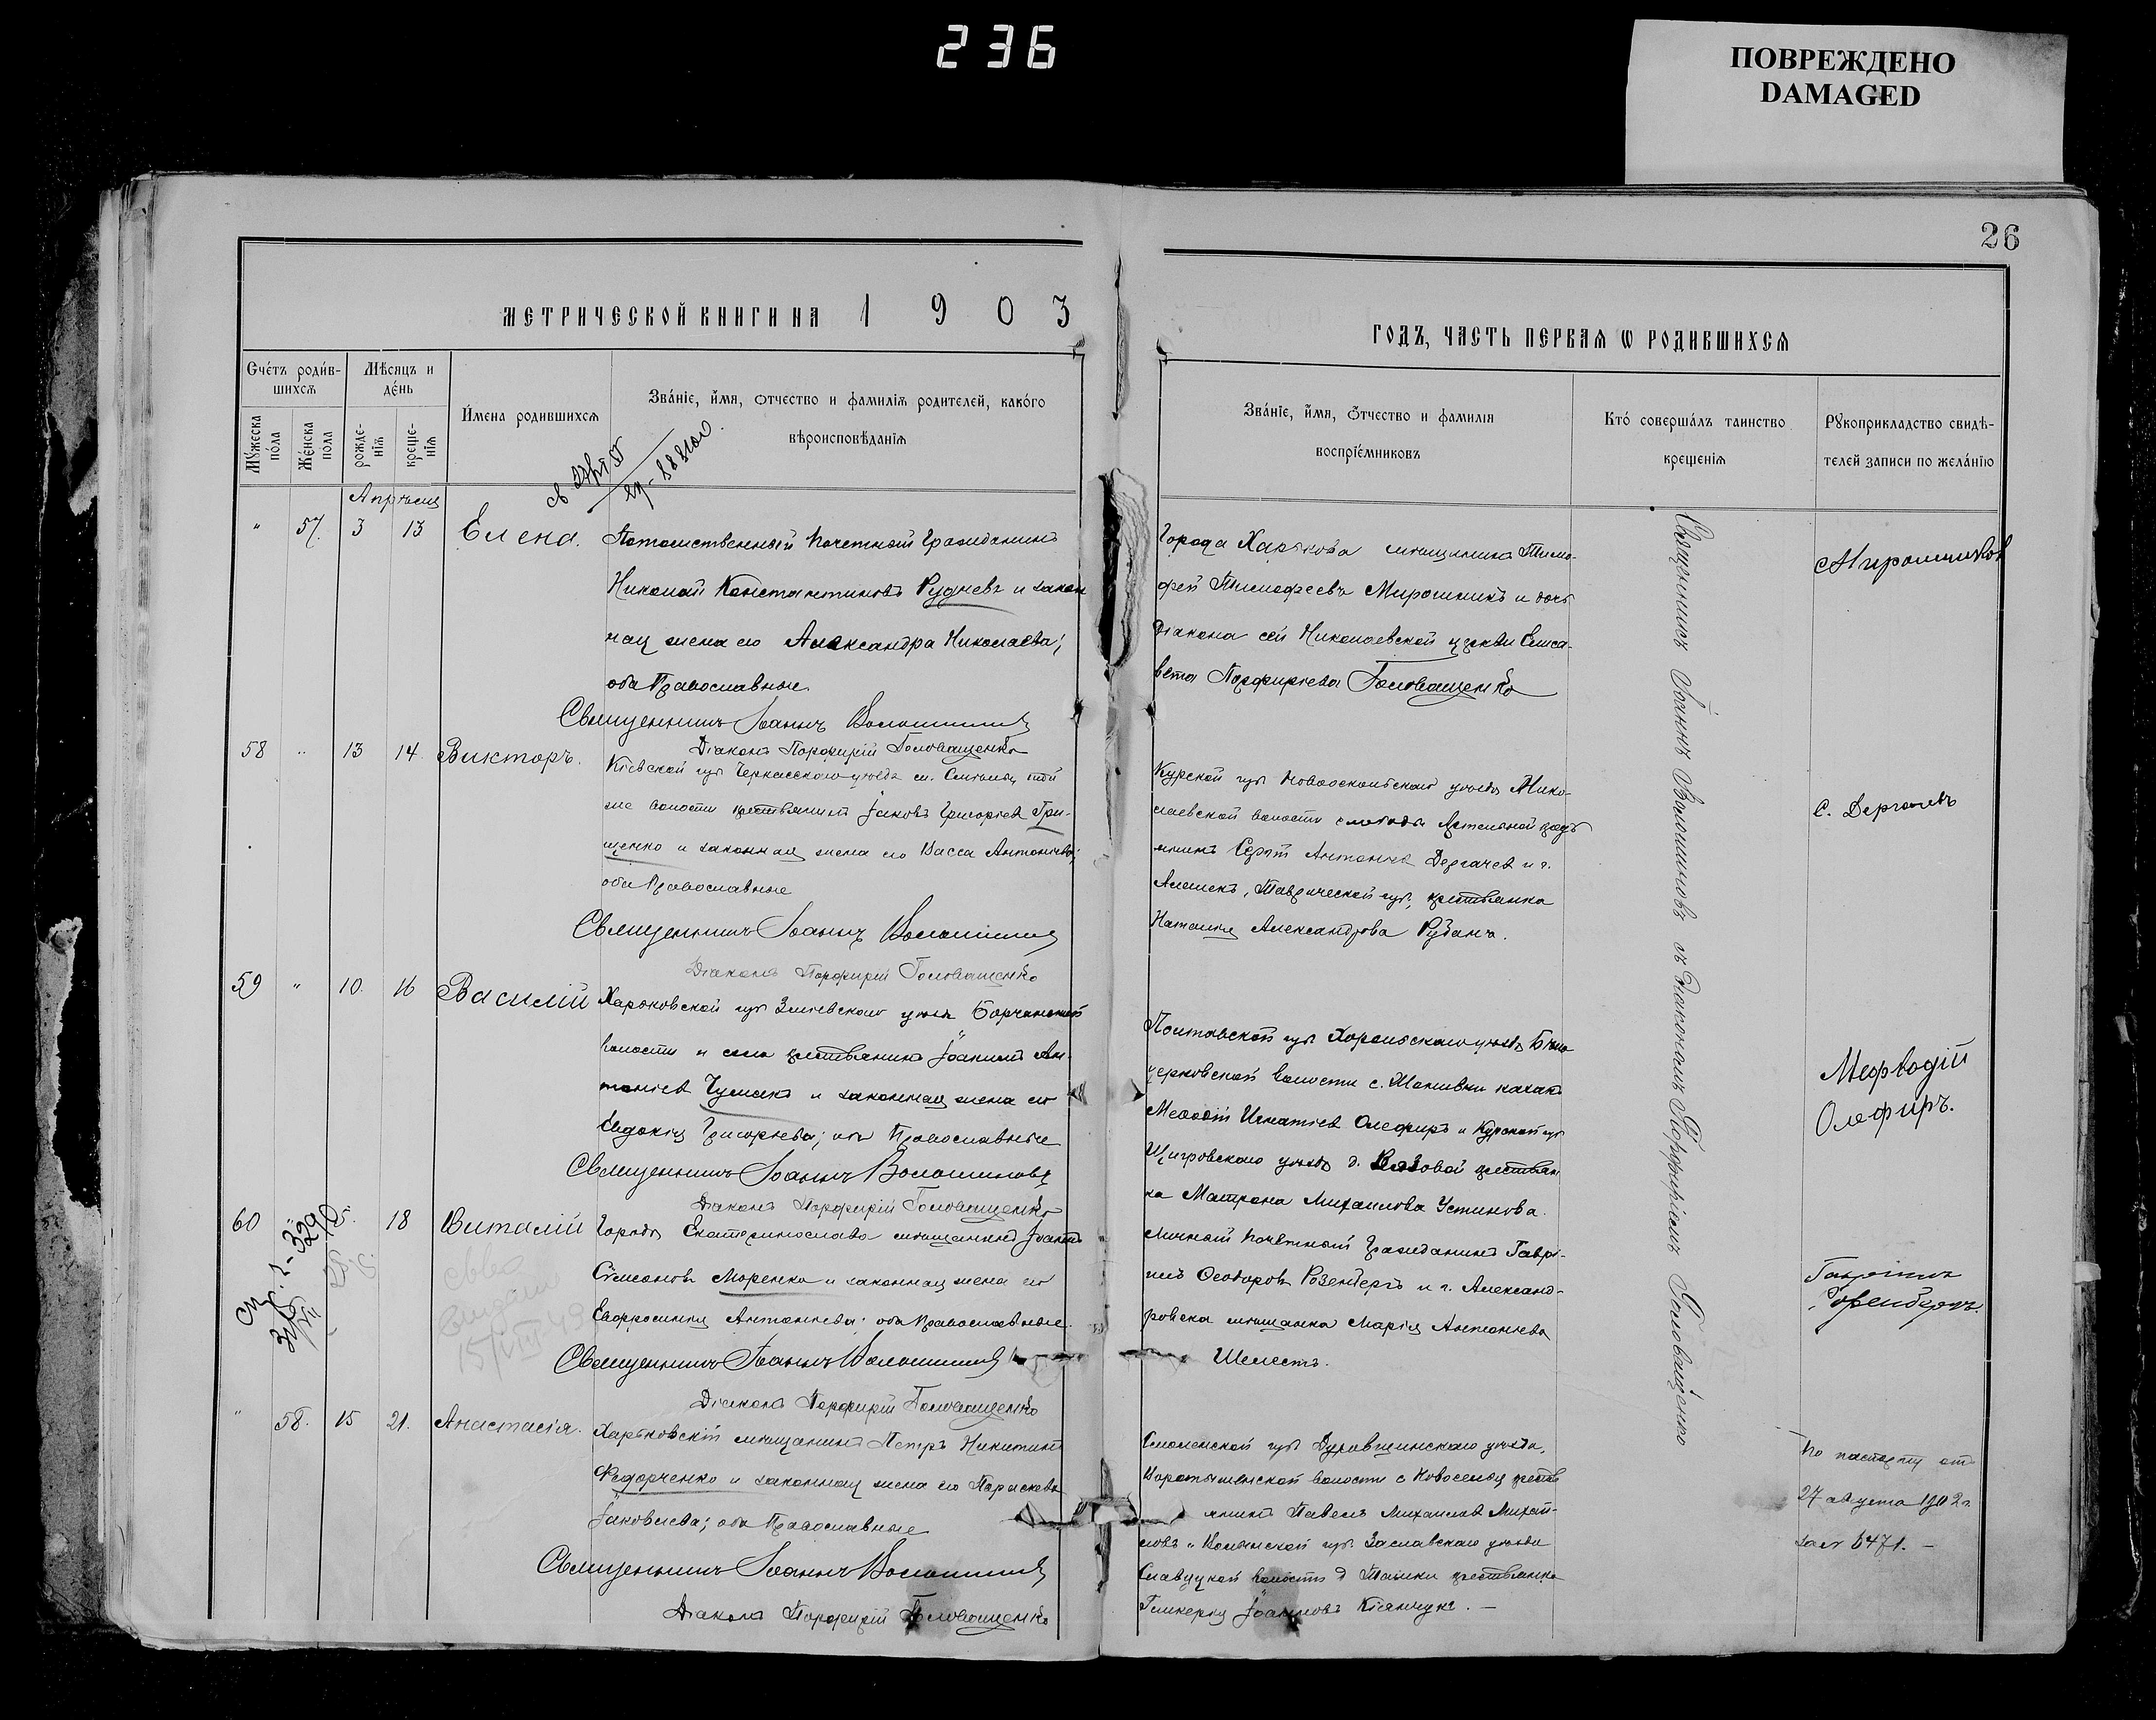 236
ПОВРЕЖДЕНО
DAMAGED
26
МЕТРИЧЕСКОЙ КНИГИ НА 1903
ГОДЪ, ЧАСТЬ ПЕРВАѦ Ѡ РОДИВШИХСѦ
Счéтъ роди́в-
шихсѧ
Мѣ́сяцъ и
дéнь
Мꙋ́жеска
по́ла
Жéнска
по́ла
рожде-
нїѧ
креще-
нїѧ
И҆́мена родившихсѧ
Звáнїе, и҆́мя, ѻтчество и фамилїѧ родителей, какóго
вѣроисповѣ́данїѧ
Звáнїе, и҆́мя, ѻ҆́тчество и фамилїя
воспрїéмниковъ
Ктó совершáлъ таинство
крещенїѧ
Рꙋкоприкладство свидѣ́-
телей записи по желáнїю
57. 3 13 Елена.
Потомственный Почетный Гражданинъ
Николай Константиновъ Рудневъ и закон
ная жена его Александра Николаева;
оба Православные
Священникъ Іоаннъ Волошиновъ
Діаконъ Порфирій Головащенко
Города Харькова мѣщанинъ Тимо-
фей Тимофеевъ Мирошникъ и дочь
Діакона сей Николаевской церкви Елиса-
вета Порфирьева Головащенко
58 " 13 14 Викторъ.
Кіевской губ Черкасскаго уѣзда м. Смѣлы, той
же волости крестьянинъ Іаковъ Григорьев Гри-
щенко и законная жена его Васса Антоньева;
оба Православные
Священникъ Іоаннъ Волошиновъ
Діаконъ Порфирій Головащенко
Курской губ Новооскольскаго уѣзда Нико-
лаевской волости слободы
Сергій Антоніев Дергачев и г.
Алешекъ, Таврической губ, крестьянка
Наталія Александрова Рубанъ.
С. Дергачевъ
59 " 10. 16 Василій
Харьковской губ Зміевскаго уѣзда
волости и села крестьянинъ Іоаннъ Ан-
тоніев Чумакъ и законная жена его
Евдокія Григорьева; оба Православные
Священникъ Іоаннъ Волошиновъ
Діаконъ Порфирій Головащенко
Полтавской губ Хорольскаго уѣзда Бѣло
церковской волости с. козакъ
Меѳодій Игнатіев Олефиръ и Курской губ
Щигровскаго уѣзда д. крестьян
ка Матрона Михаилова Устинова.
Мефводій
Олефиръ.
60 18 Виталій
Города Екатеринослава мѣщанинъ Іоаннъ
Сѵмеоновъ Моренко и законная жена его
Евфросинія Антоньева; оба Православные.
Священникъ Іоаннъ Волошиновъ
Діаконъ Порфирій Головащенко
Личный Почетный Гражданинъ Гаврі-
илъ Ѳеодоровъ Розенбергъ и г. Александ-
ровска мѣщанка Марія Антоньева
Шелестъ.
" 58. 15 21. Анастасія.
Харьковскій мѣщанинъ Петръ Никитинъ
Федорченко и законная жена его Параскева
Іаковлева; оба Православные
Священникъ Іоаннъ Волошиновъ
Діаконъ Порфирій Головащенко
Смоленской губ Духовщинскаго уѣзда,
волости с Новоселья крестья
нинъ Павелъ Михаилов Михай-
ловъ и Волынской губ. Заславскаго уѣзда
Славутской волости д Ташки крестьянка
Гликерія Іоаннова
По паспорту отъ
27 августа 1902 г.
за № 6471. —
Священникъ Іоаннъ Волошиновъ съ Діакономъ Порфиріемъ Головащенко